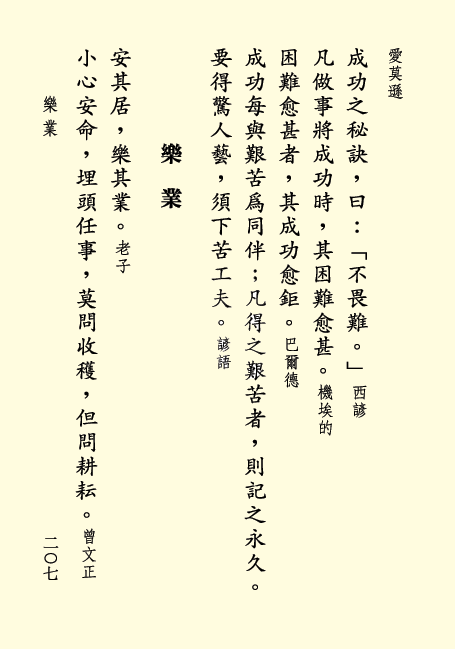 愛莫遜
成功之秘訣，曰：「不畏難。」西諺
凡做事將成功時，其困難愈甚。機埃的
困難愈甚者，其成功愈鉅。巴爾德
成功每與艱苦為同伴；凡得之艱苦者，則記之永久。
要得驚人藝，須下苦工夫。諺語
樂業
安其居，樂其業。老子
小心安命，埋頭任事，莫問收穫，但問耕耘。曾文正
樂業
二〇七